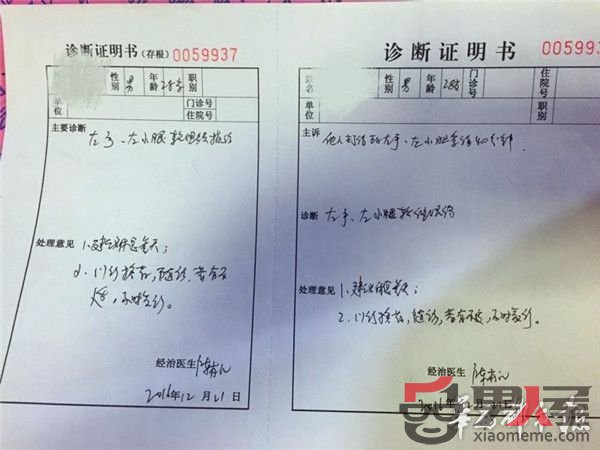 诊断证明书(存根) 0059937
性别 男 年龄 职别
单位 门诊号 住院号
主要诊断
左手、左小腿软组织损伤
处理意见 1.建议休息
2.门诊换药,随诊,若有不
适,不时复诊。
经治医生
2016年12月21日
诊断证明书 005993
姓名 性别 男 年龄 28岁 门诊号 住院号
单位 职别
主诉
他人打伤致左手、左小腿受伤40分钟
诊断 左手、左小腿软组织损伤
处理意见 1.建议休息
2.门诊换药,随诊,若有不适,不时复诊。
经治医生
2016年12月21日
xiaomeme.com